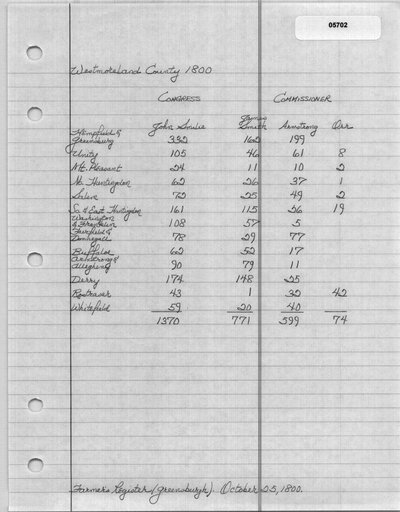 05702
Westmoreland County 1800
CONGRESS COMMISSIONER
John Smilie James Smith Armstrong Orr
Hempfield &
Greensburg 332 162 199
Unity 105 46 61 8
Mt. Pleasant 24 11 10 2
No. Huntingdon 62 26 37 1
Salem 72 25 49 2
So. & East Huntingdon 161 115 26 19
Washington
& Franklin 108 57 5
Fairfield &
Donnegall 78 29 77
Buffaloe 62 52 17
Armstrong &
Allegheny 90 79 11
Derry 174 148 25
Rostraver 43 1 32 42
Whitefield 59 20 40
1370 771 599 74
Farmer's Register (Greensburgh). October 25, 1800.